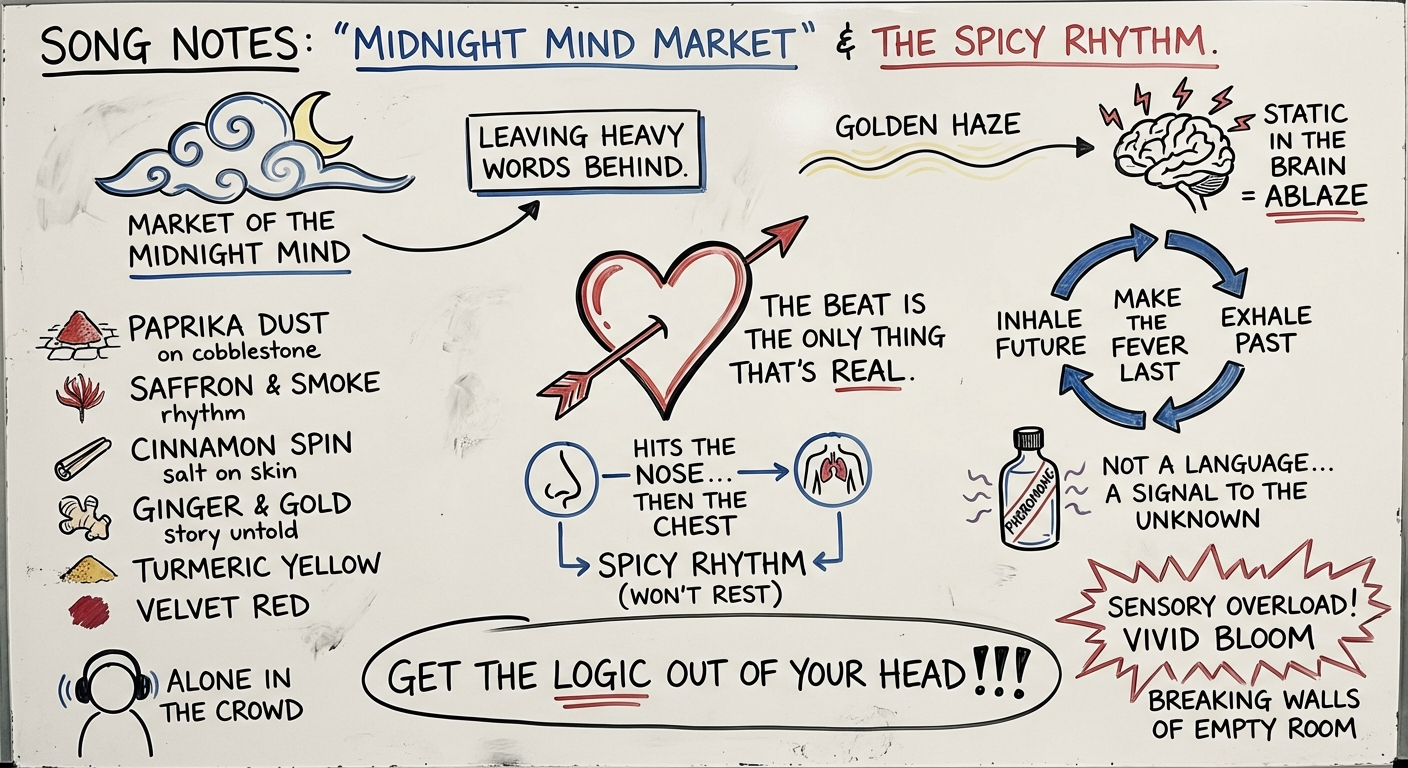 SONG NOTES: "MIDNIGHT MIND MARKET" & THE SPICY RHYTHM.
MARKET OF THE
MIDNIGHT MIND
LEAVING HEAVY
WORDS BEHIND.
GOLDEN HAZE
STATIC
IN THE
BRAIN
= ABLAZE
PAPRIKA DUST
on cobblestone
SAFFRON & SMOKE
rhythm
CINNAMON SPIN
salt on skin
GINGER & GOLD
story untold
TURMERIC YELLOW
VELVET RED
ALONE IN
THE CROWD
THE BEAT IS
THE ONLY THING
THAT'S REAL.
HITS THE
NOSE...
THEN THE
CHEST
SPICY RHYTHM
(WON'T REST)
GET THE LOGIC OUT OF YOUR HEAD!!!
INHALE
FUTURE
MAKE
THE
FEVER
LAST
EXHALE
PAST
PHEROMONE
NOT A LANGUAGE...
A SIGNAL TO THE
UNKNOWN
SENSORY OVERLOAD!
VIVID BLOOM
BREAKING WALLS
OF EMPTY ROOM